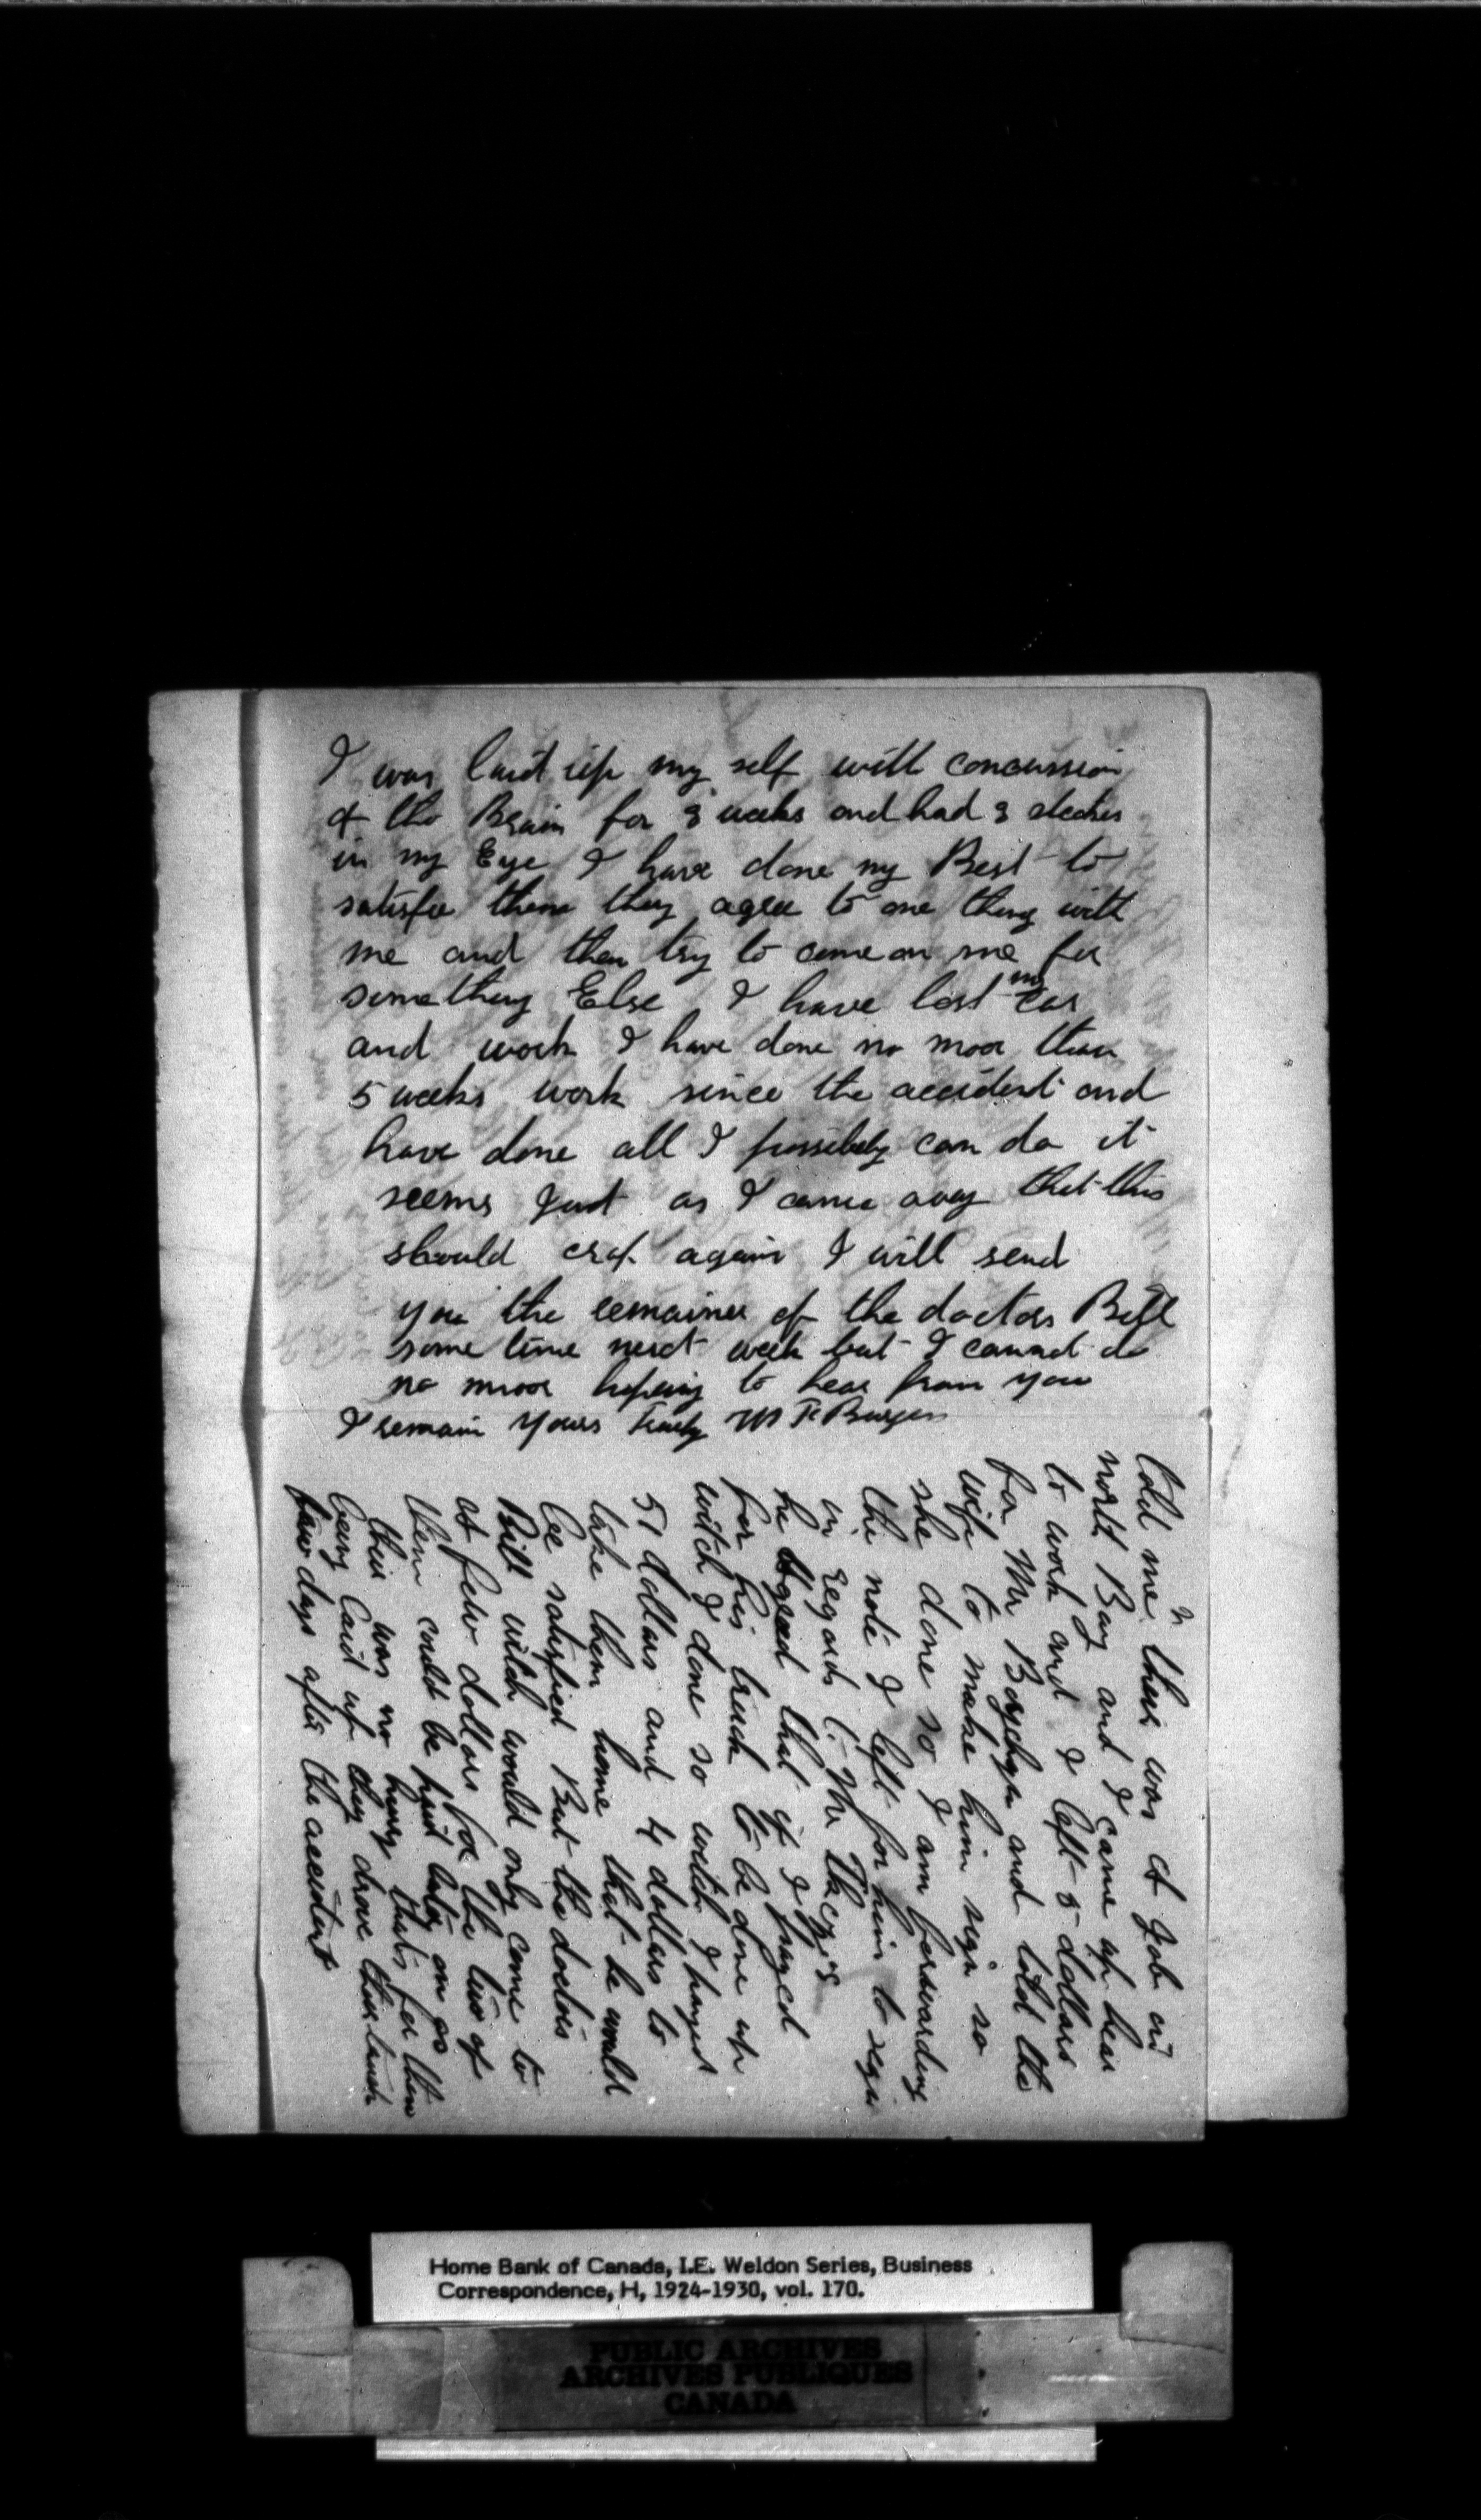 I was laid up my self with concussion
of the Brain for 3 weeks and had 3 stiches
in my Eye I have done my Best to
satisfie them they agree to one thing with
me and then try to come on me for
something Else I have lost my car
and work I have done no moor than
5 weeks work since the accident and
have done all I possibely can do it
seems Just as I came away that this
should crop again I will send
you the remainer of the doctors Bill
some time next week but I cannot do
no moor hopeing to hear from you
I remain Yours Truely Burgess
2
told me their was a Job in
north Bay and I came up hear
to work and I left 5 dollars
for Mr and told the
wife to make him sign so
she done so I am forwarding
the note I left for him to sign
in regards to Mr
he Agreed that if I payed
for his truck to be done up
witch I done so witch I payed
51 dollars and 4 dollars to
take them home that he would
be satisfied But the doctors
Bill witch would only come to
at few dollars for the two of
them could be paid later on as
their was no hurry thats for them
being laid up they drove their truck
few days after the accident
Home Bank of Canada, I.E. Weldon Series, Business
Correspondence, H, 1924-1930, vol. 170.
PUBLIC ARCHIVES
ARCHIVES PUBLIQUES
CANADA